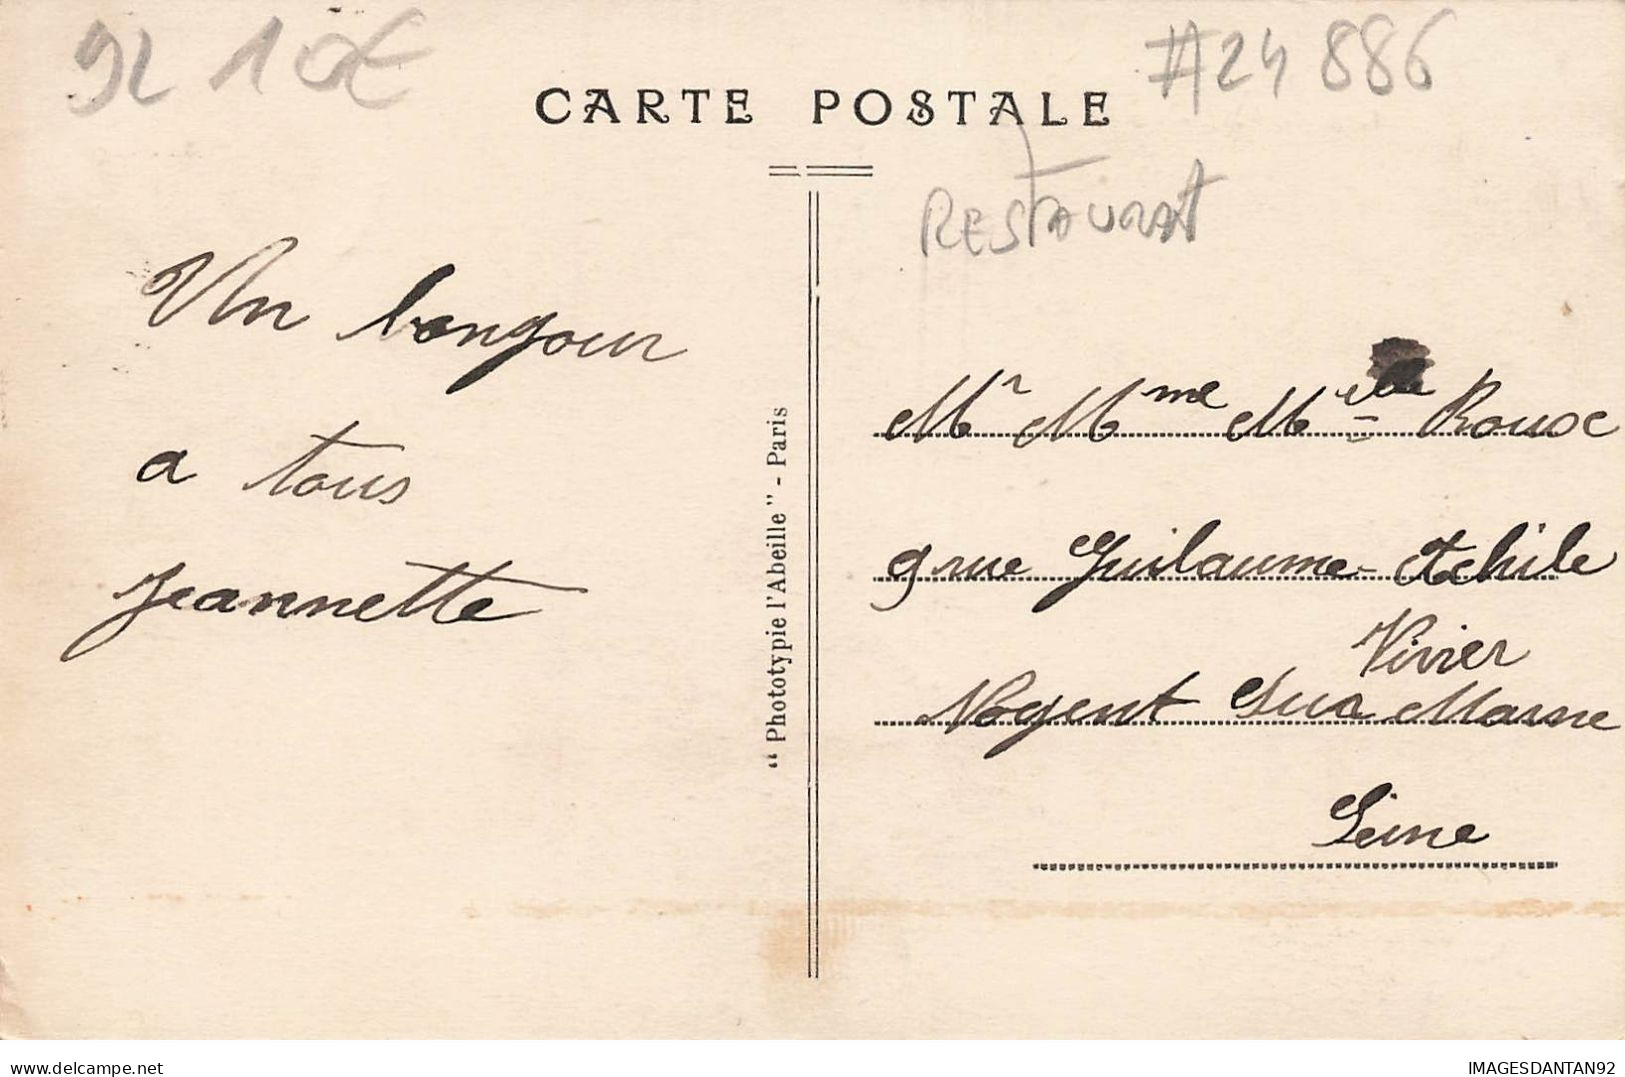 92 10€
#24 886
CARTE POSTALE
RESTAURAT
Un bonjour
a tous
Jeannette
"Phototypie l'Abeille" - Paris
Mr Mme Melle Rouse
9 rue Guilaume Achile
Vivier
Nogent Sur Marne
Seine
delcampe.net
IMAGESDANTAN92